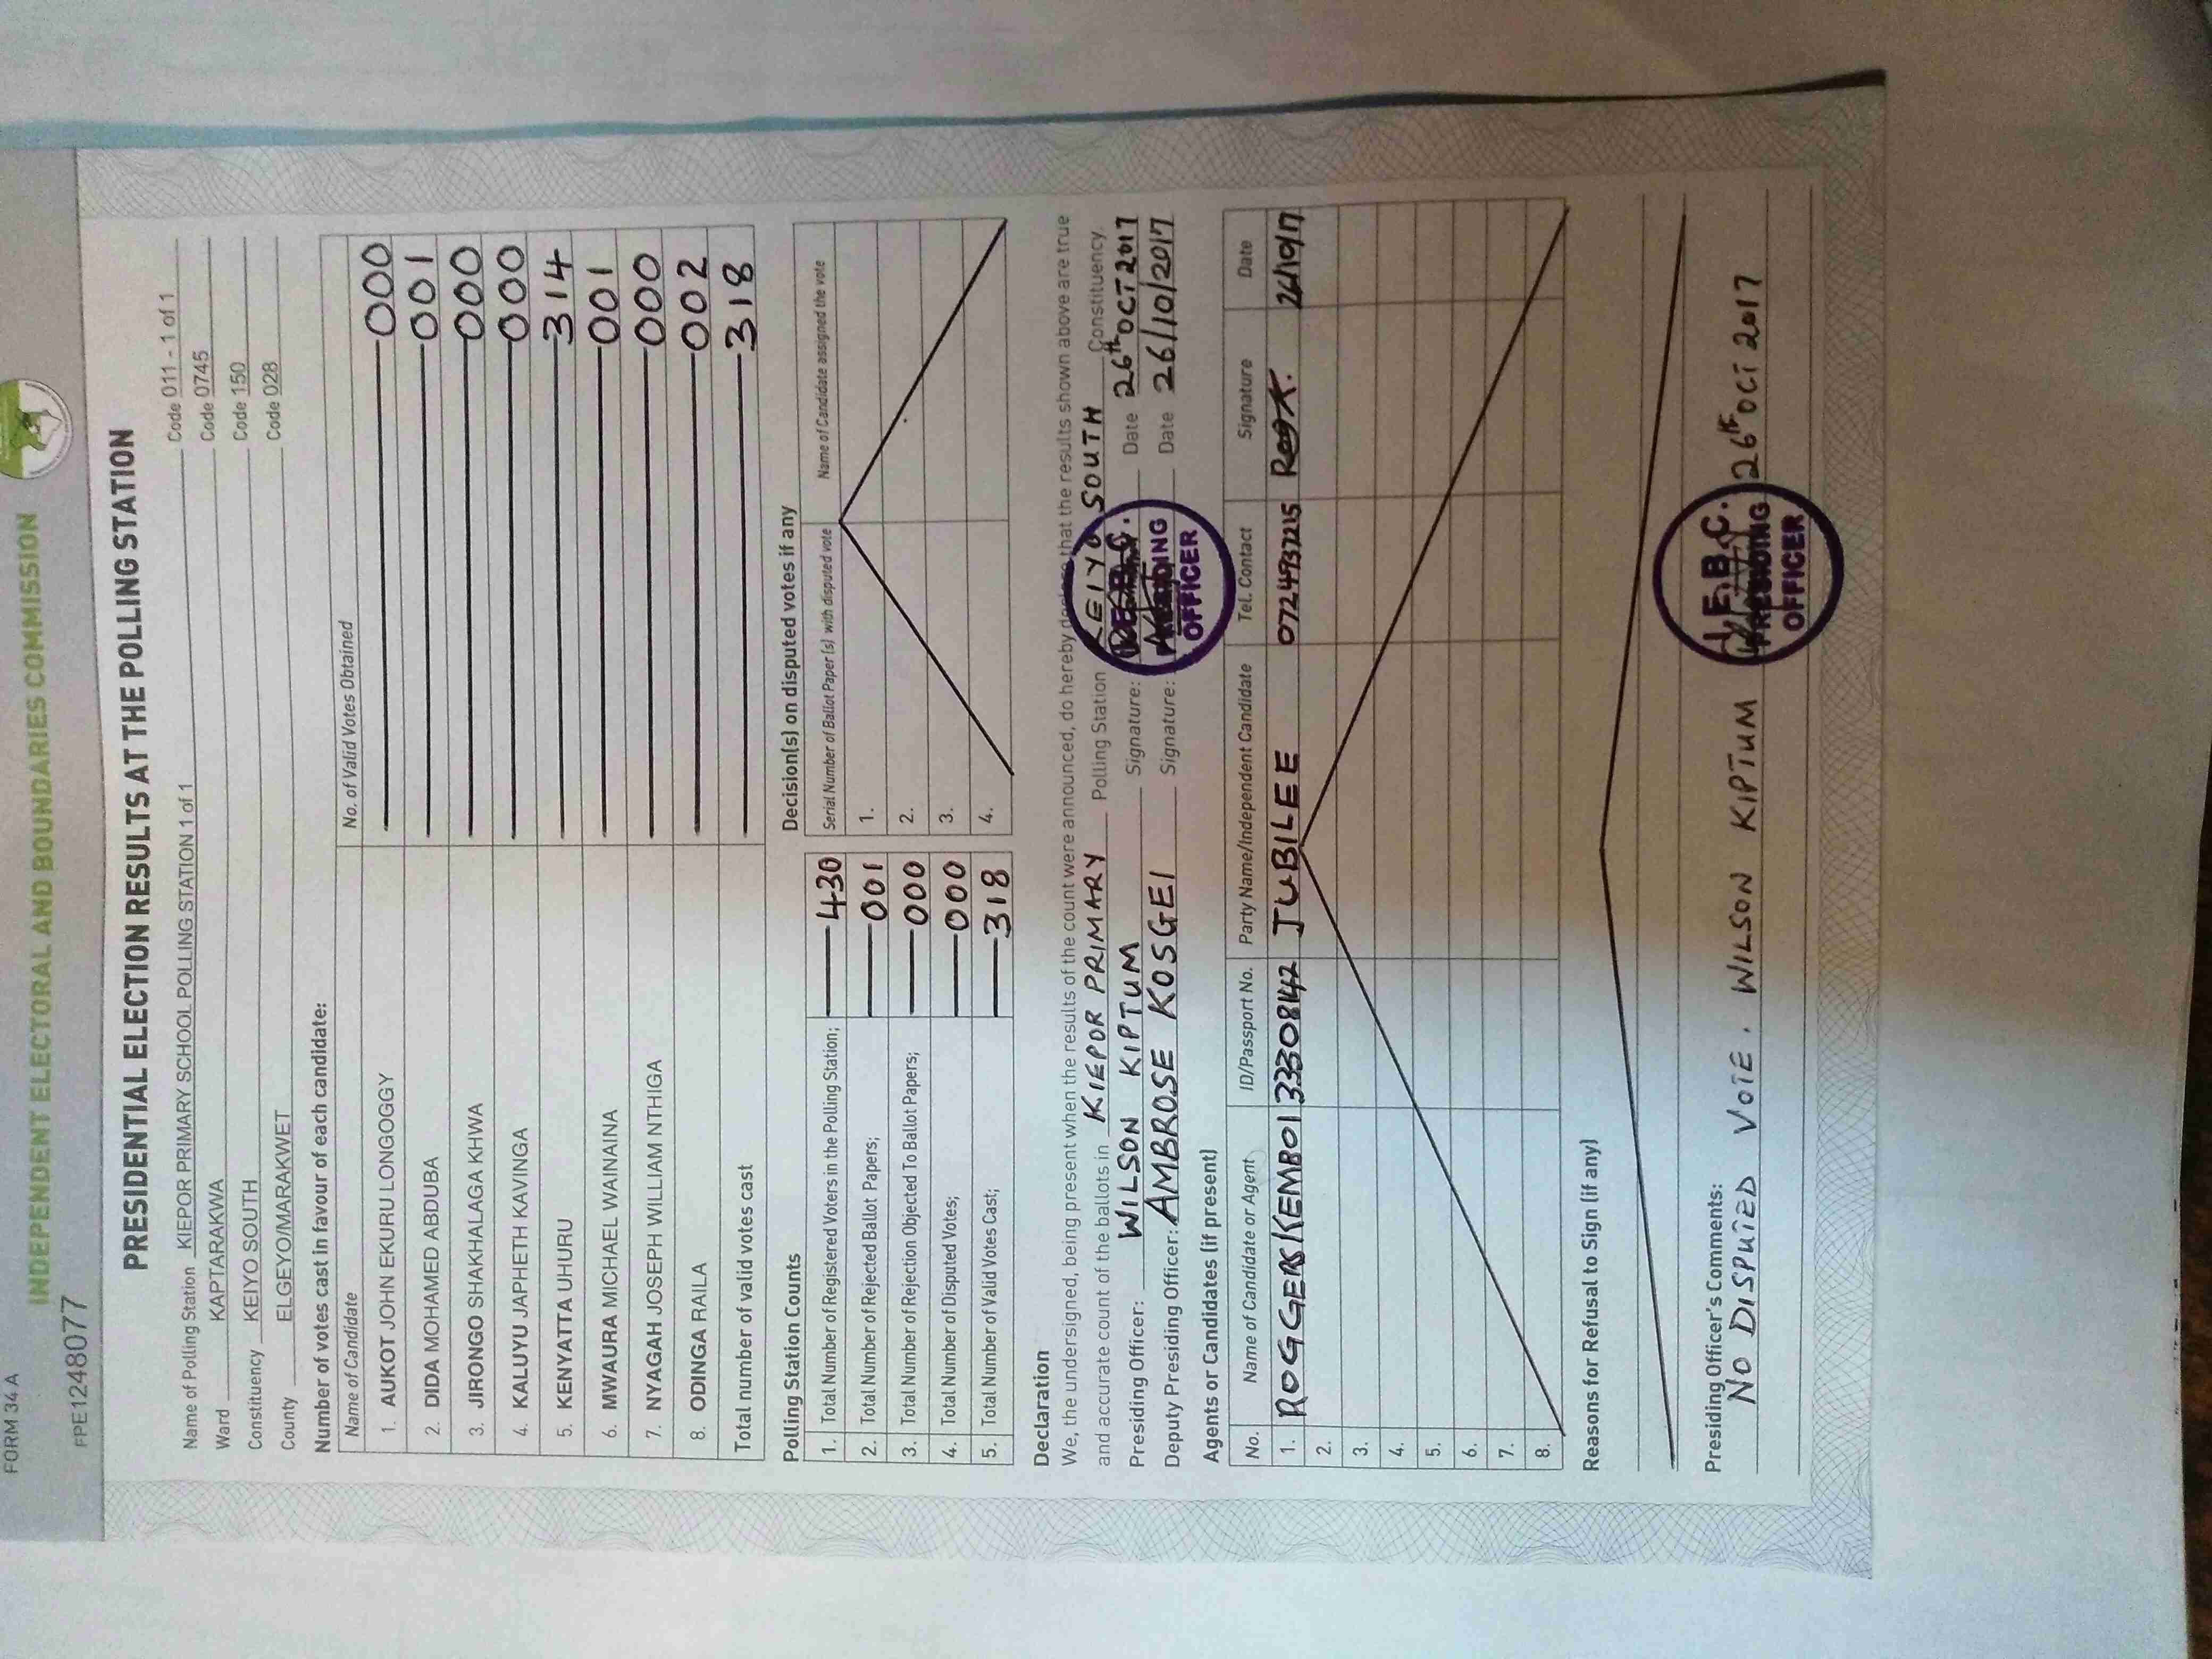 FORM 34 A
INDEPENDENT ELECTORAL AND BOUNDARIES COMMISSION
FPE1248077
PRESIDENTIAL ELECTION RESULTS AT THE POLLING STATION
Name of Polling Station KIEPOR PRIMARY SCHOOL POLLING STATION 1 of 1 Code 011 - 1 of 1
Ward KAPTARAKWA Code 0745
Constituency KEIYO SOUTH Code 150
County ELGEYO/MARAKWET Code 028
Number of votes cast in favour of each candidate:
Name of Candidate No. of Valid Votes Obtained
1. AUKOT JOHN EKURU LONGOGGY 000
2. DIDA MOHAMED ABDUBA 001
3. JIRONGO SHAKHALAGA KHWA 000
4. KALUYU JAPHETH KAVINGA 000
5. KENYATTA UHURU 314
6. MWAURA MICHAEL WAINAINA 001
7. NYAGAH JOSEPH WILLIAM NTHIGA 000
8. ODINGA RAILA 002
Total number of valid votes cast 318
Polling Station Counts
1. Total Number of Registered Voters in the Polling Station; 430
2. Total Number of Rejected Ballot Papers; 001
3. Total Number of Rejection Objected To Ballot Papers; 000
4. Total Number of Disputed Votes; 000
5. Total Number of Valid Votes Cast; 318
Decision(s) on disputed votes if any
Serial Number of Ballot Paper (s) with disputed vote Name of Candidate assigned the vote
1.
2.
3.
4.
Declaration
We, the undersigned, being present when the results of the count were announced, do hereby declare that the results shown above are true
and accurate count of the ballots in KIEPOR PRIMARY Polling Station KEIYO SOUTH Constituency.
Presiding Officer: WILSON KIPTUM Signature: Date 26th OCT 2017
Deputy Presiding Officer: AMBROSE KOSGEI Signature: Date 26/10/2017
OFFICER
Agents or Candidates (if present)
No. Name of Candidate or Agent ID/Passport No. Party Name/Independent Candidate Tel. Contact Signature Date
1. ROGGERS KEMBOI 33308142 JUBILEE 0724937215 26/10/17
2.
3.
4.
5.
6.
7.
8.
Reasons for Refusal to Sign (if any)
Presiding Officer's Comments:
NO DISPUTED VOTE. WILSON KIPTUM 26th OCT 2017
I.E.B.C.
PRESIDING
OFFICER